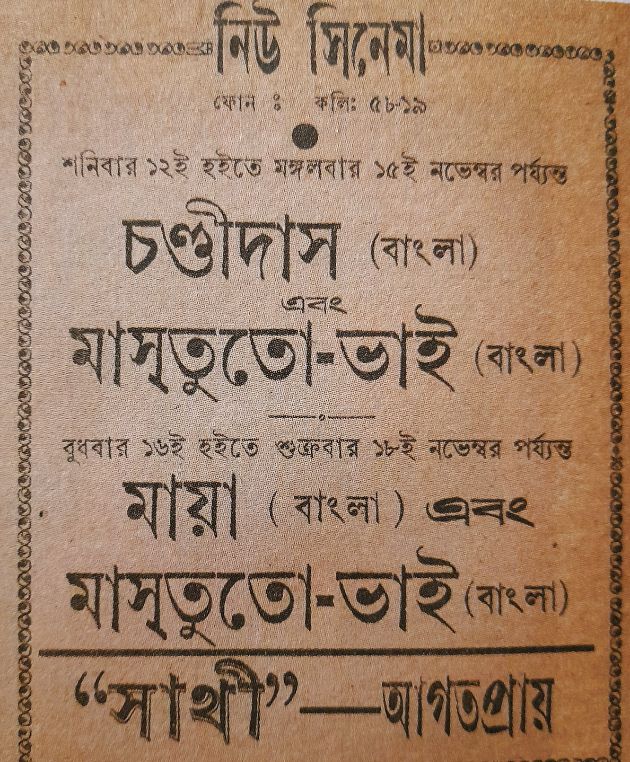 নিউ সিনেমা
ফোন : কলি: ৫৮-১৯
শনিবার ১২ই হইতে মঙ্গলবার ১৫ই নভেম্বর পর্য্যন্ত
চণ্ডীদাস (বাংলা)
এবং
মাস্তুতো-ভাই (বাংলা)
বুধবার ১৬ই হইতে শুক্রবার ১৮ই নভেম্বর পর্য্যন্ত
মায়া (বাংলা) এবং
মাস্তুতো-ভাই (বাংলা)
“সাথী”—আগতপ্রায়